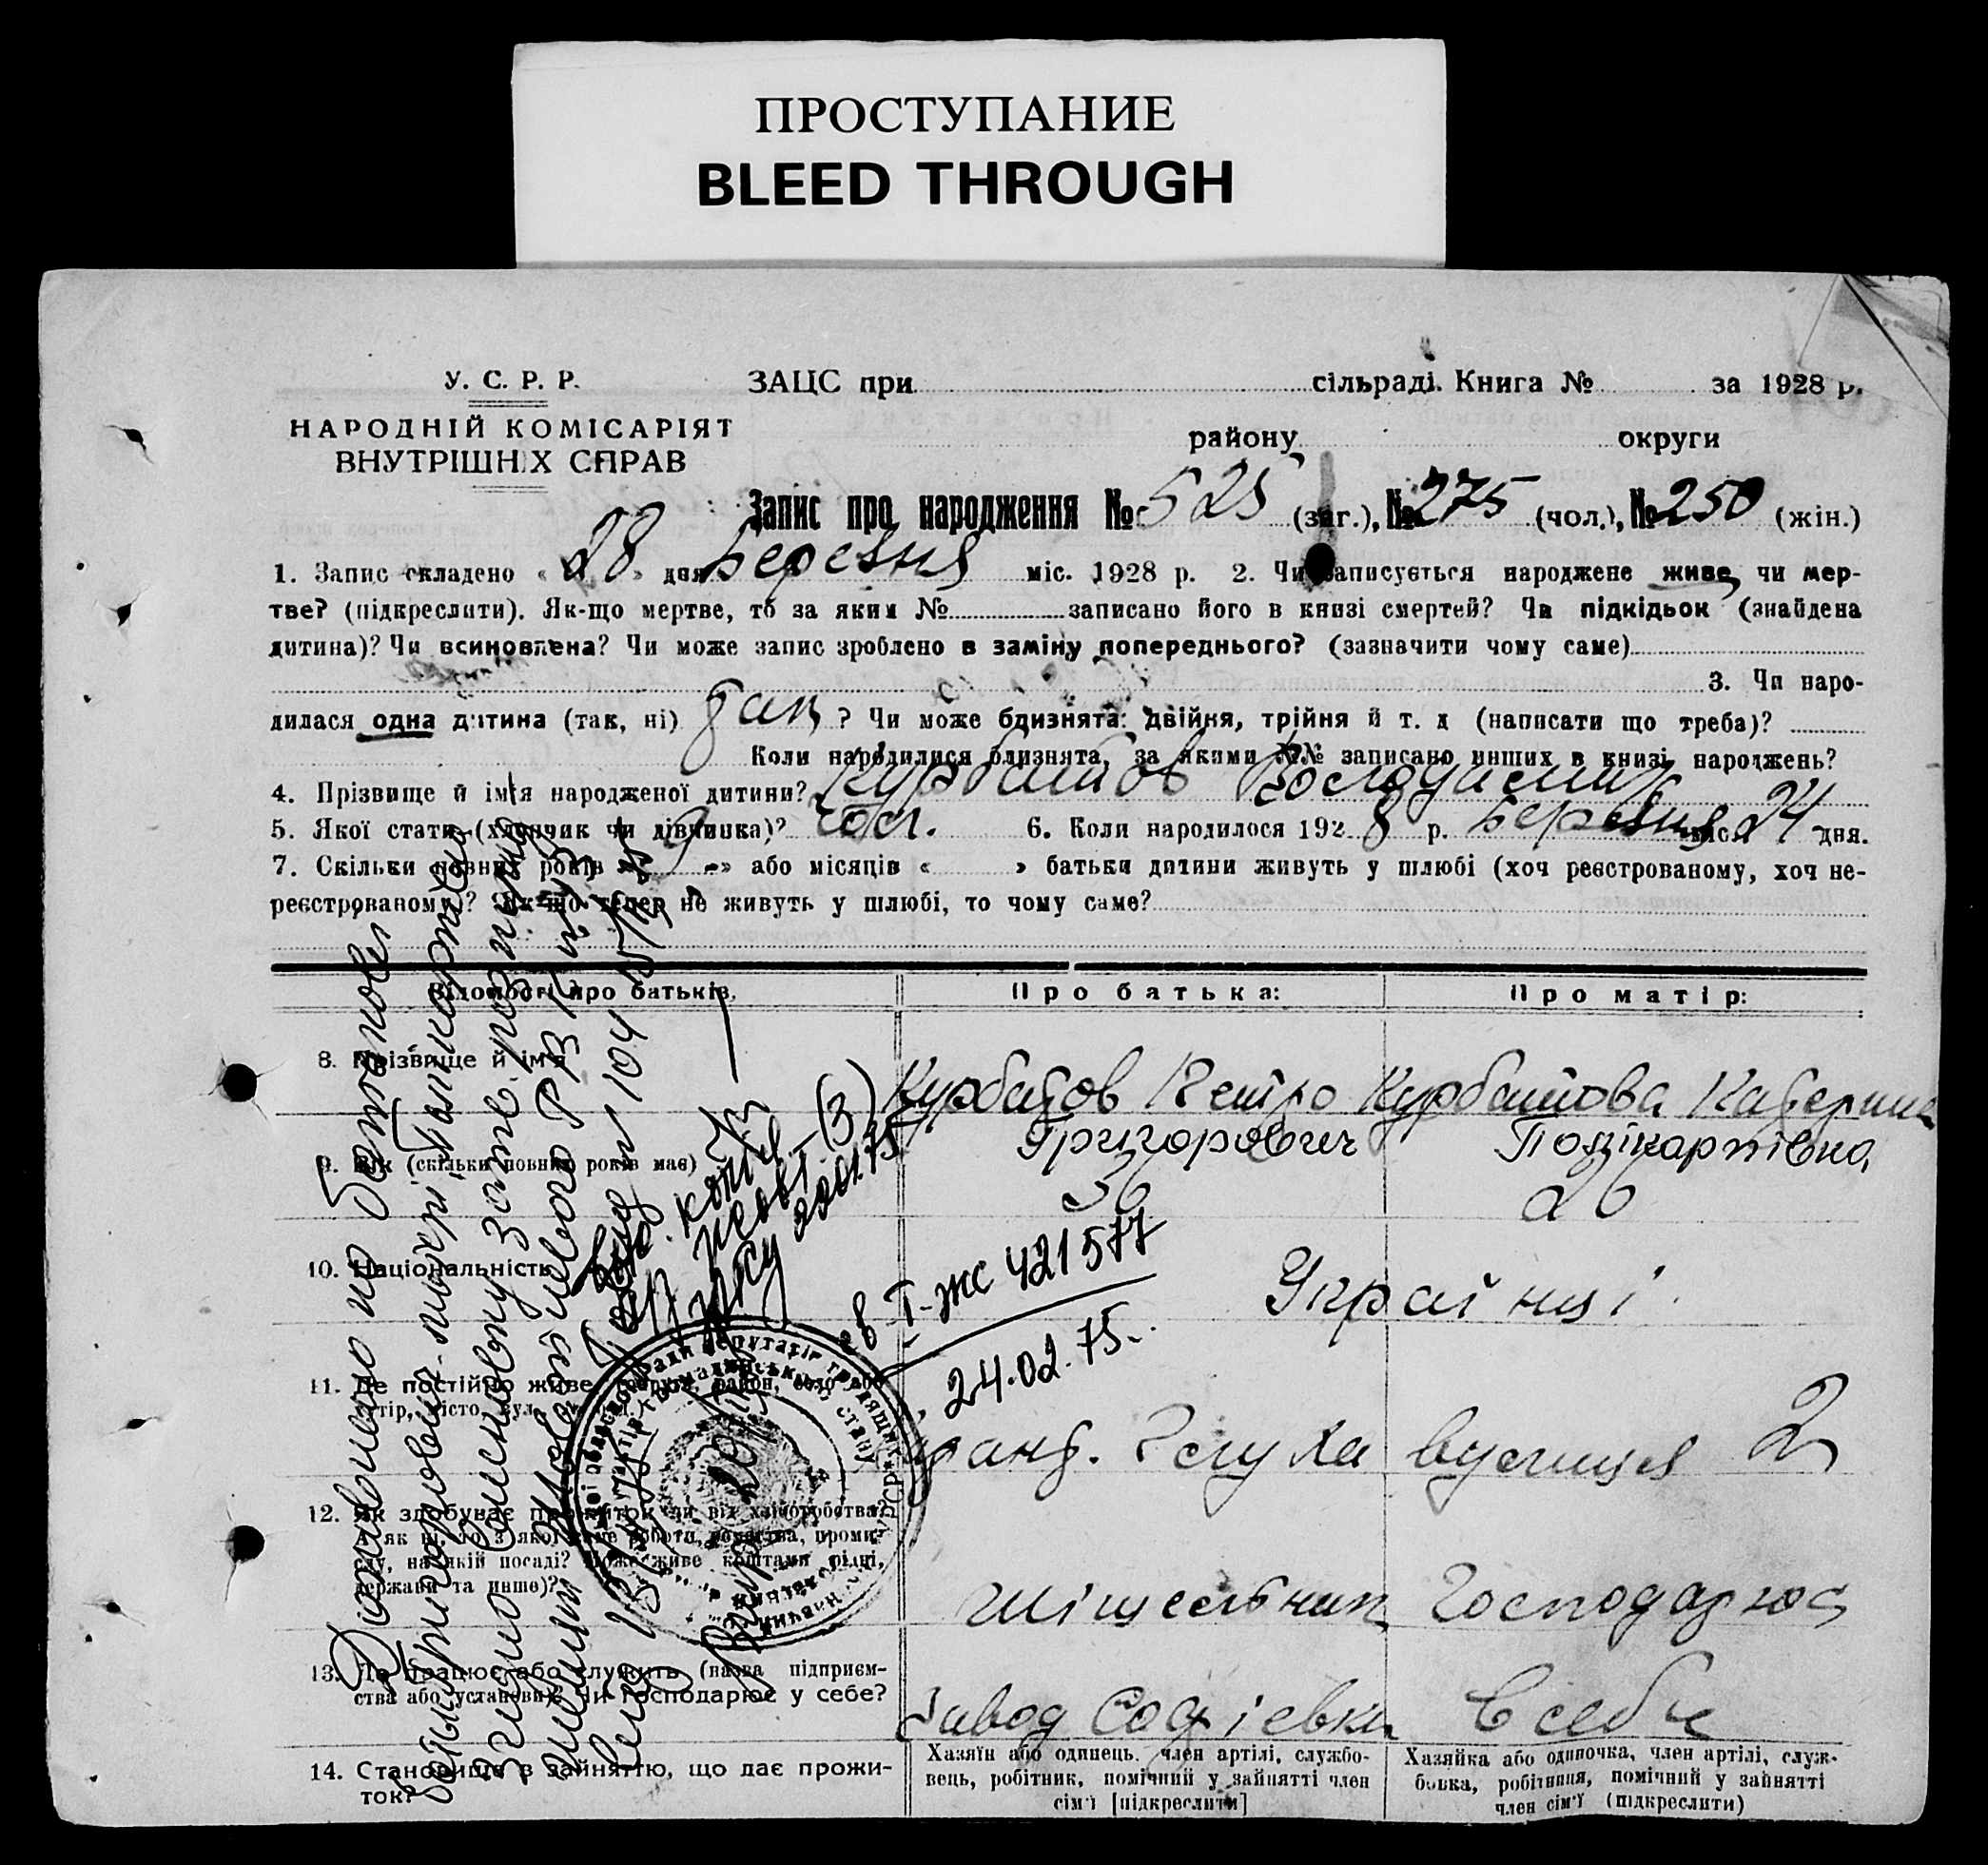 ПРОСТУПАНИЕ
BLEED THROUGH
У. С. Р. Р.
НАРОДНІЙ КОМІСАРІЯТ
ВНУТРІШНІХ СПРАВ
ЗАЦС при сільраді. Книга № за 1928 р.
району округи
Запис про народження № 525 (заг.), № 275 (чол.), № 250 (жін.)
1. Запис складено « 28 » дня Березня міс. 1928 р. 2. Чи записується народжене живе, чи мер-
тве? (підкреслити). Як-що мертве, то за яким № записано його в книзі смертей? Чи підкідьок (знайдена
дитина)? Чи всиновлена? Чи може запис зроблено в заміну попереднього? (зазначити чому саме)
3. Чи наро-
дилася одна дитина (так, ні) так ? Чи може близнята: двійня, трійня й т. д (написати що треба)?
Коли народилися близнята, за якими №№ записано инших в книзі народжень?
4. Прізвище й ім'я народженої дитини? Курбатов Володимир
5. Якої стати (хлопчик чи дівчинка)? чол. 6. Коли народилося 1928 р. Березня міс. 24 дня.
7. Скільки повних років « 9 » або місяців « » батьки дитини живуть у шлюбі (хоч реєстрованому, хоч не-
реєстрованому)? Як-що тепер не живуть у шлюбі, то чому саме?
Відомості про батьків Про батька: Про матір:
8. Прізвище й ім'я Курбатов Петро Курбатова Катерина
Григорович Полікарпівна
9. Вік (скільки повних років має) 36 26
10. Національність Українці
11. Де постійно живе округа, район, село або
хутір, місто, вул.
вулиця 2
12. Як здобуває прожиток чи від хліборобства?
А як ні, то з якої саме роботи, ремества, проми-
слу, на якій посаді? Може живе коштами рідні,
держави та инше)?
Господарює
13. Де працює або служить (назва підприєм-
ства або установи)? Чи господарює у себе?
Завод Софієвка В себе
14. Становище в зайняттю, що дає прожи-
ток?
Хазяїн або одинець, член артілі, службо-
вець, робітник, помічний у зайнятті член
сім'ї [підкреслити]
Хазяйка або одиночка, член артілі, служ-
бовка, робітниця, помічний у зайнятті
член сім'ї (підкреслити)
Доповнено по батькові
батька Григорович матері Полікарпівна
згідно висновку
від
св І-ЖС 421577
24.02.75